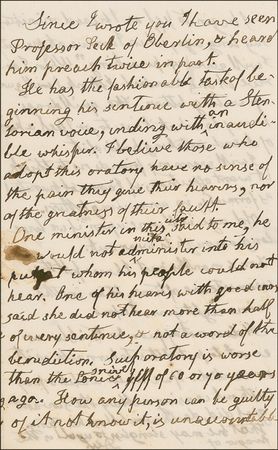 Since I wrote you I have seen
Professor Peck of Oberlin, & heard
him preach twice in part.
He has the fashionable task of be-
ginning his sentence with a Sten
torian voice, ending with an inaudi-
ble whisper. I believe those who
adopt this oratory have no sense of
the pain they give their hearers, nor
of the greatness of their fault
One minister in this city said to me, he
would not invite a minister into his
pulpit whom his people could not
hear. One of his hearers with good ears
said she did not hear more than half
of every sentence, & not a word of the
benediction. Such oratory is worse
than the tonic of 60 or 70 years
ago. How any person can be guilty
of it not know it, is unaccountable